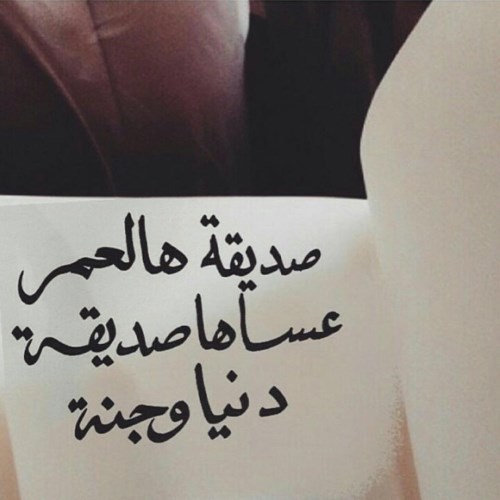 صديقة هالعمر
عساها صديقة
دنيا وجنة